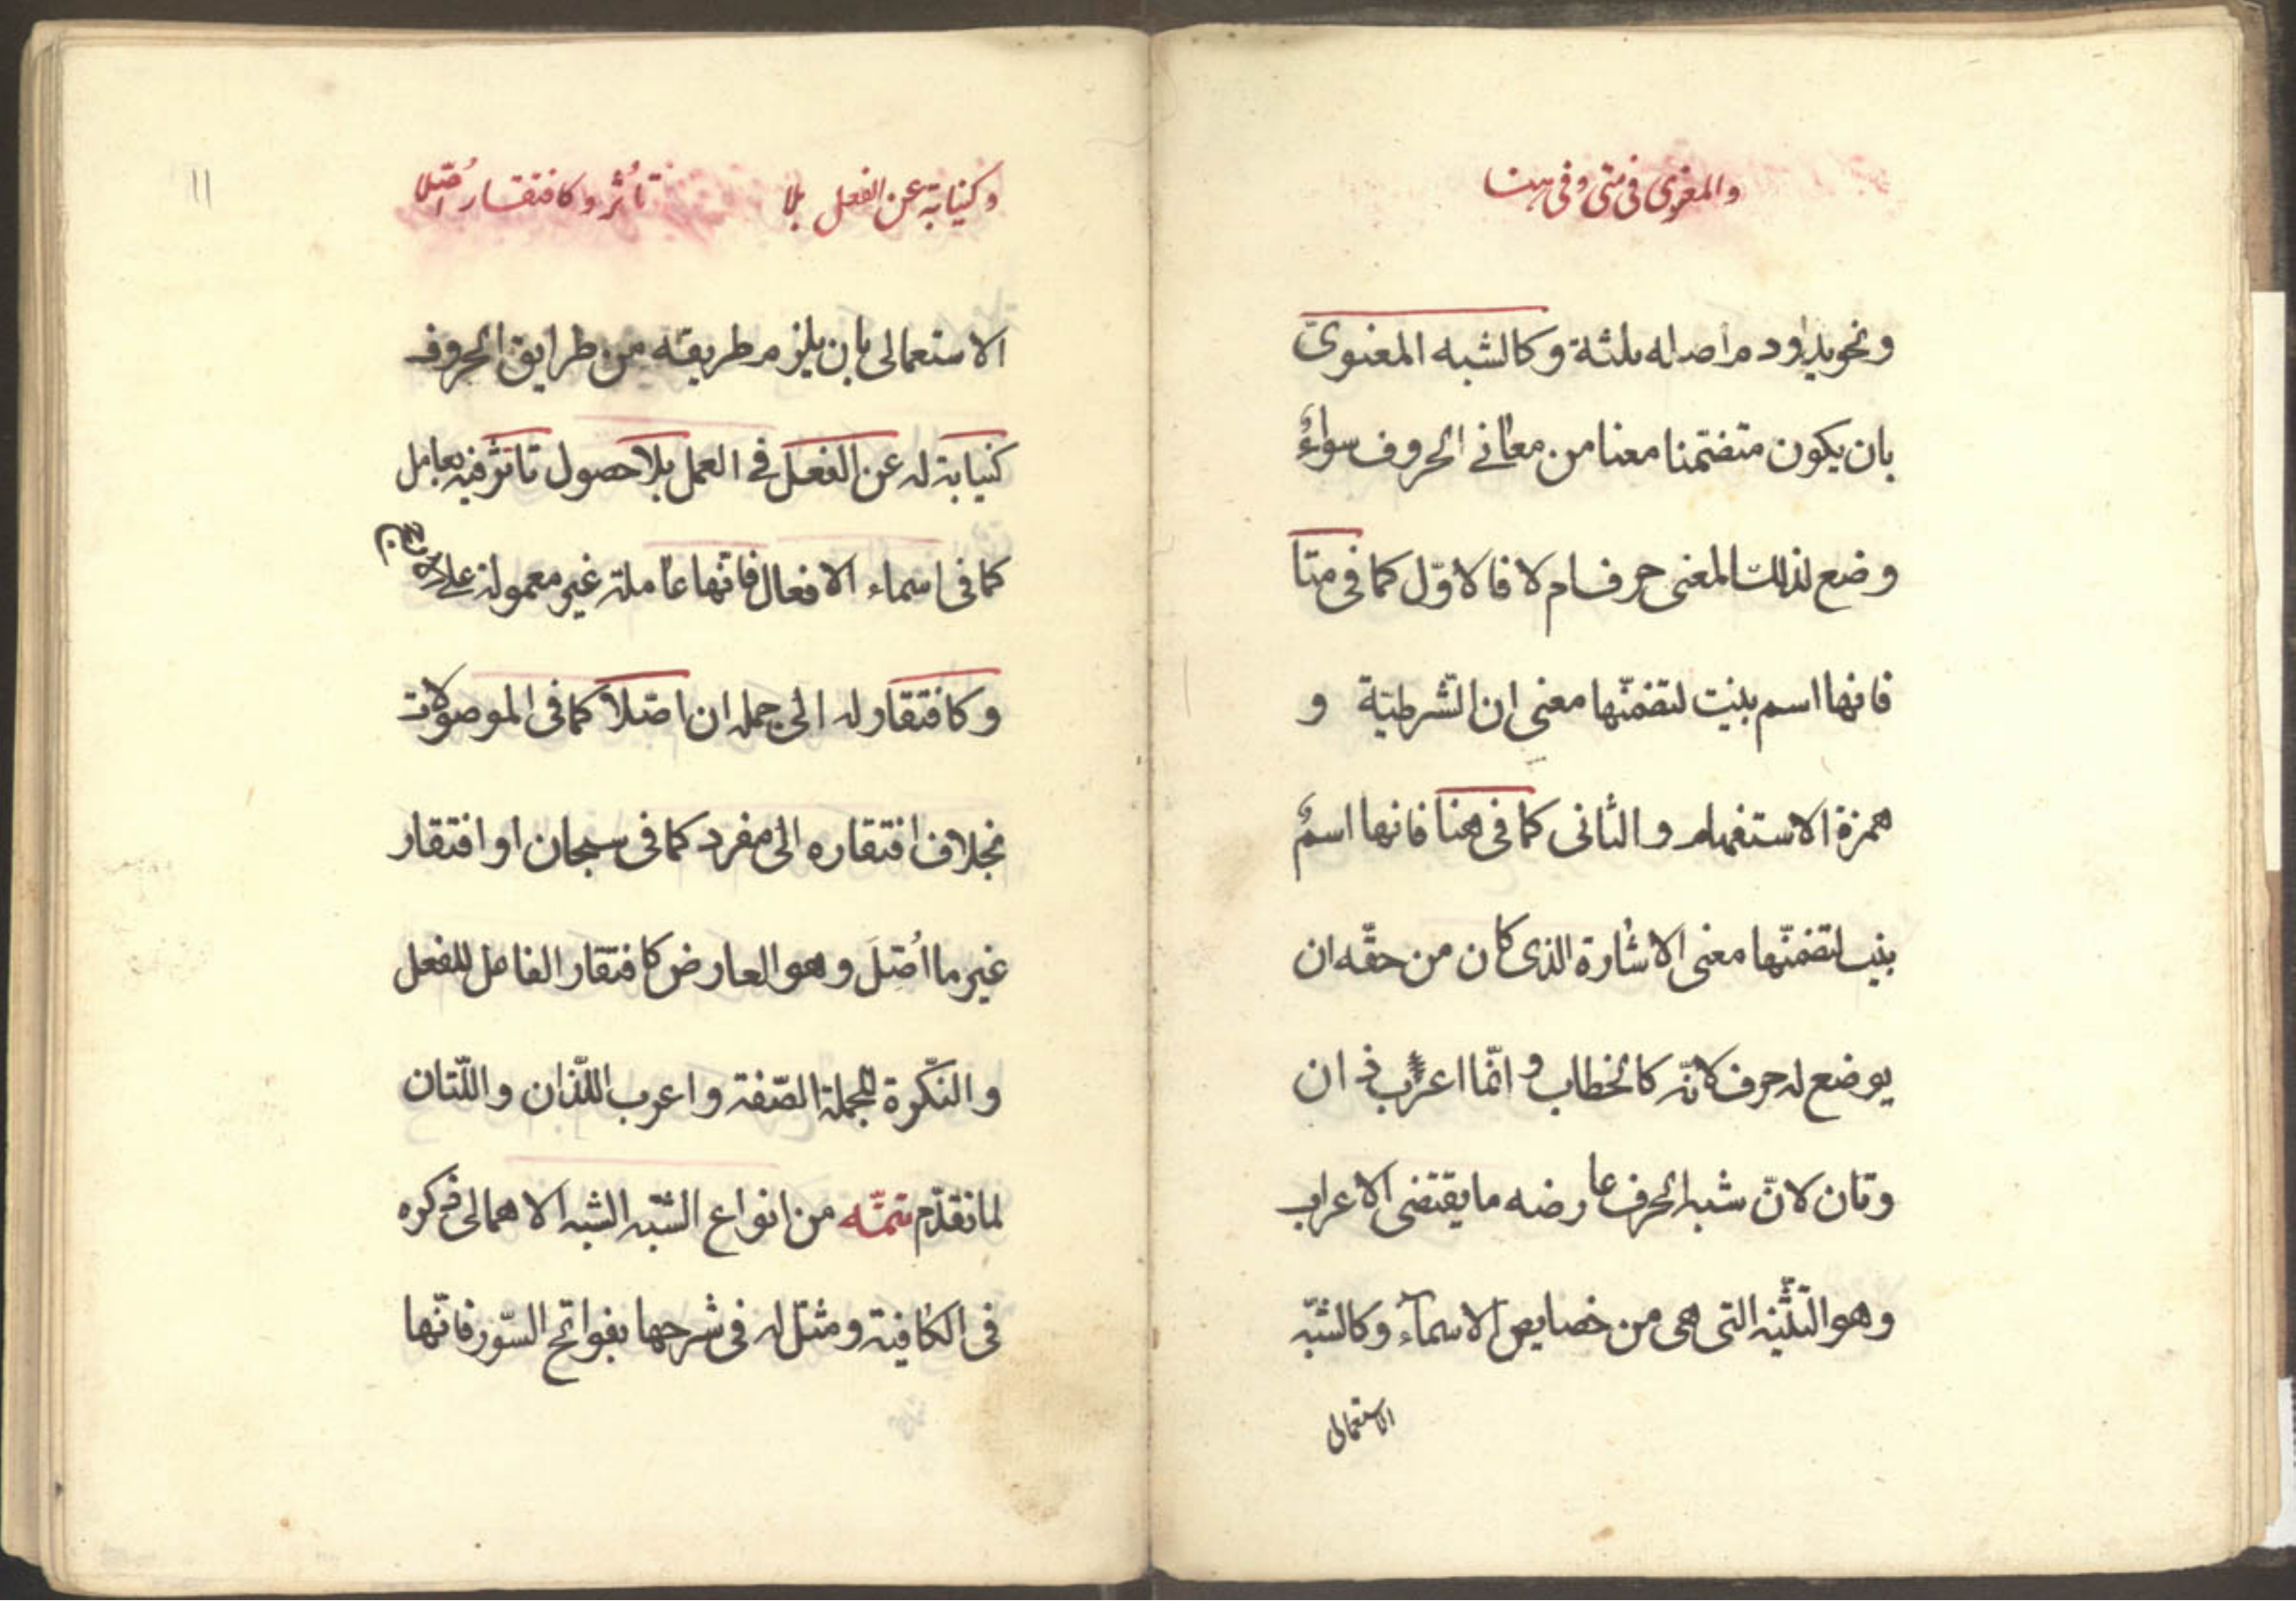 والمعنوي في متى وفي هنا
ونحو يد ودم اصله ثلثة وكالشبه المعنوي
بان يكون متضمنا معنا من معاني الحروف سواءٌ
وضع لذلك المعنى حرف ام لا فالاوّل كما في متا
فانها اسم بنيت لتضمّنها معنى ان الشّرطيّة و
همزة الاستفهام والثانى كما في هنا فانها اسمٌ
بنيت لتضمّنها معنى الاشارة الذى كان من حقّه ان
يوضع له حرف لانّه كالخطاب وانّما اعرب ذان
وتان لانّ شبه الحرف عارضه ما يقتضى الاعراب
وهو التّثنيه التى هى من خصايص الاسمآء وكالشّبّه
الاستعمالى
١١
وكنيابة عن الفعل بلا تأثّر وكافتقار اُصّلا
الاستعمالى بان يلزم طريقه من طرايق الحروف
كنيابة له عن الفعل في العمل بلا حصول تاثّر فيه بعامل
كما في اسماء الافعال فانّها عاملة غير معمولة على الارجح
وكافتقار له الى جمله ان اصّلا كما فى الموصولات
بخلاف افتقاره الى مفرد كما فى سبحان او افتقار
غير ما اُصّل وهو العارض كافتقار الفاعل للفعل
والنّكرة للجملة الصّفة واعرب اللّذان واللّتان
لما تقدّم تتمّه من انواع الشّبه الشبه الاهمالى ذكره
فى الكافية ومثّل له فى شرحها بفواتح السّور فانّها